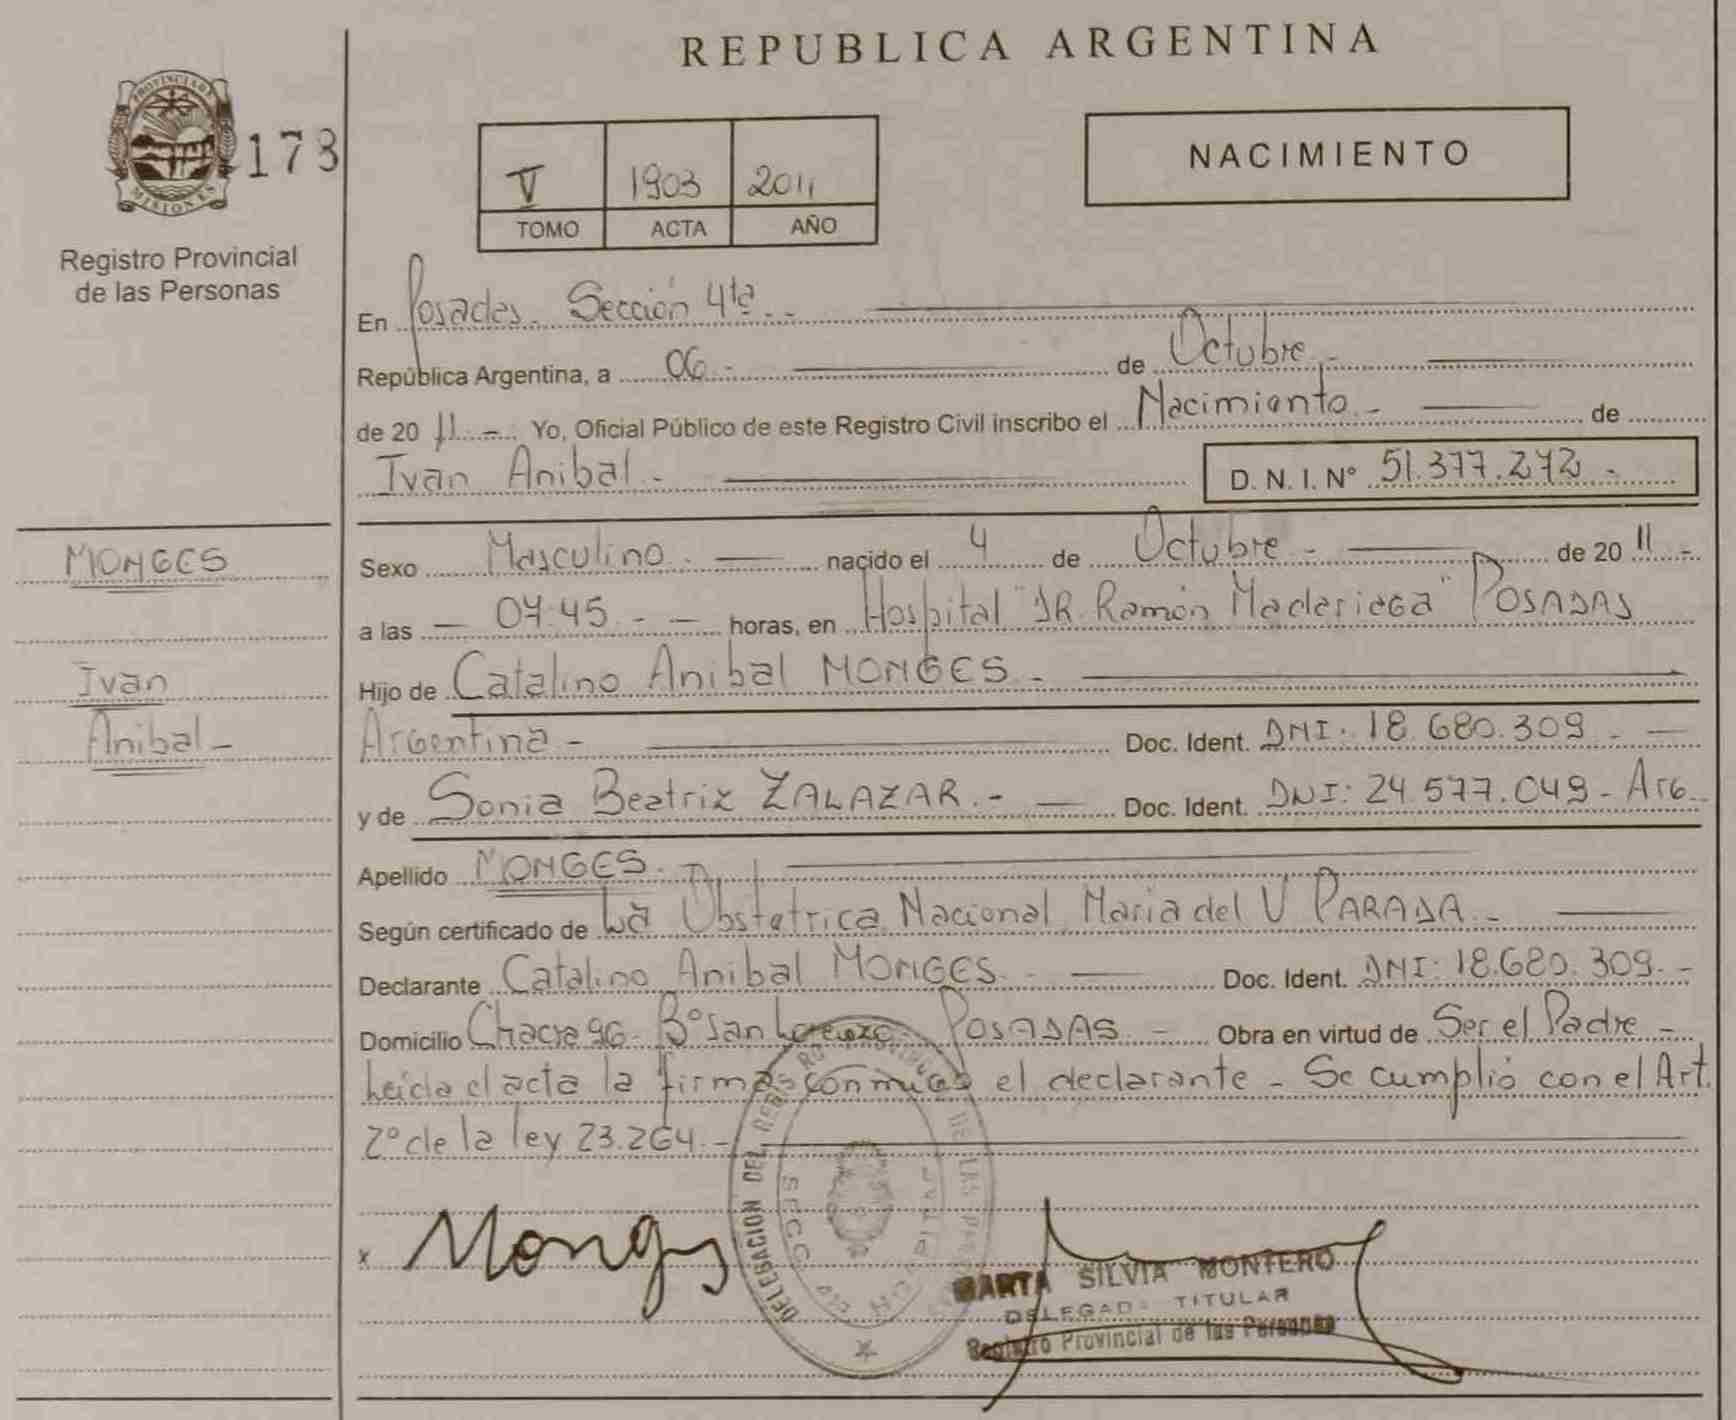 REPUBLICA ARGENTINA
PROVINCIA DE
MISIONES
173
Registro Provincial
de las Personas
V 1903 2011
TOMO ACTA AÑO
NACIMIENTO
En Posadas - Sección 4ta - -
República Argentina, a 06 - de Octubre -
de 20 11 - Yo, Oficial Público de este Registro Civil inscribo el Nacimiento - de
Ivan Anibal - D. N. I. Nº 51.377.272 -
MONGES
Ivan
Anibal -
Sexo Masculino - nacido el 4 de Octubre - de 20 11 -
a las - 07:45 - - horas, en Hospital "DR. Ramón Madariaga" POSADAS
Hijo de Catalino Anibal MONGES -
Argentina - Doc. Ident. DNI: 18.680.309 -
y de Sonia Beatriz ZALAZAR - Doc. Ident. DNI: 24.577.049 - Arg.
Apellido MONGES -
Según certificado de La Obstetrica Nacional Maria del V PARADA -
Declarante Catalino Anibal MONGES - Doc. Ident. DNI: 18.680.309 -
Domicilio Chacra 96 - Bº San Lorenzo - POSADAS - Obra en virtud de Ser el Padre -
Leida el acta la firmas conmigo el declarante - Se cumplió con el Art.
2º de la ley 23.264 -
x Monges
DELEGACION DEL REGISTRO PROVINCIAL DE LAS PERSONAS
SECC. 4ta HOSPITAL
MARTA SILVIA MONTERO
DELEGADA TITULAR
Registro Provincial de las Personas